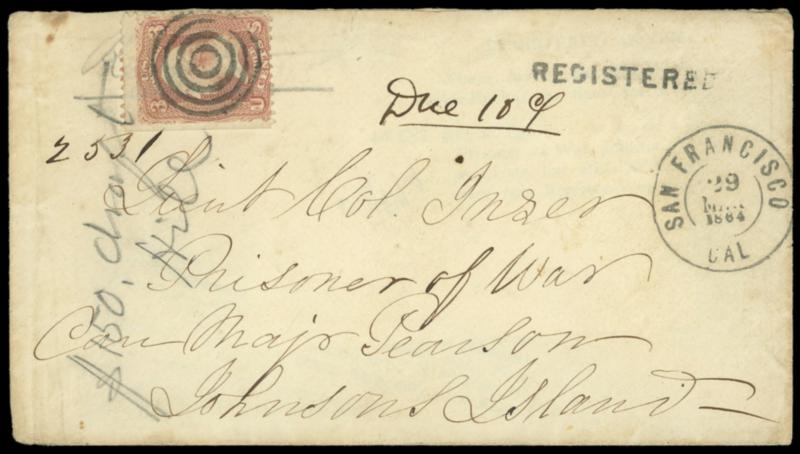 REGISTERED
Due 10 ¢
2531
SAN FRANCISCO
29
MAR
1864
CAL
Lieut Col. Inzer
Prisoner of War
Care Majr Pearson
Johnsons Island
$150, draft